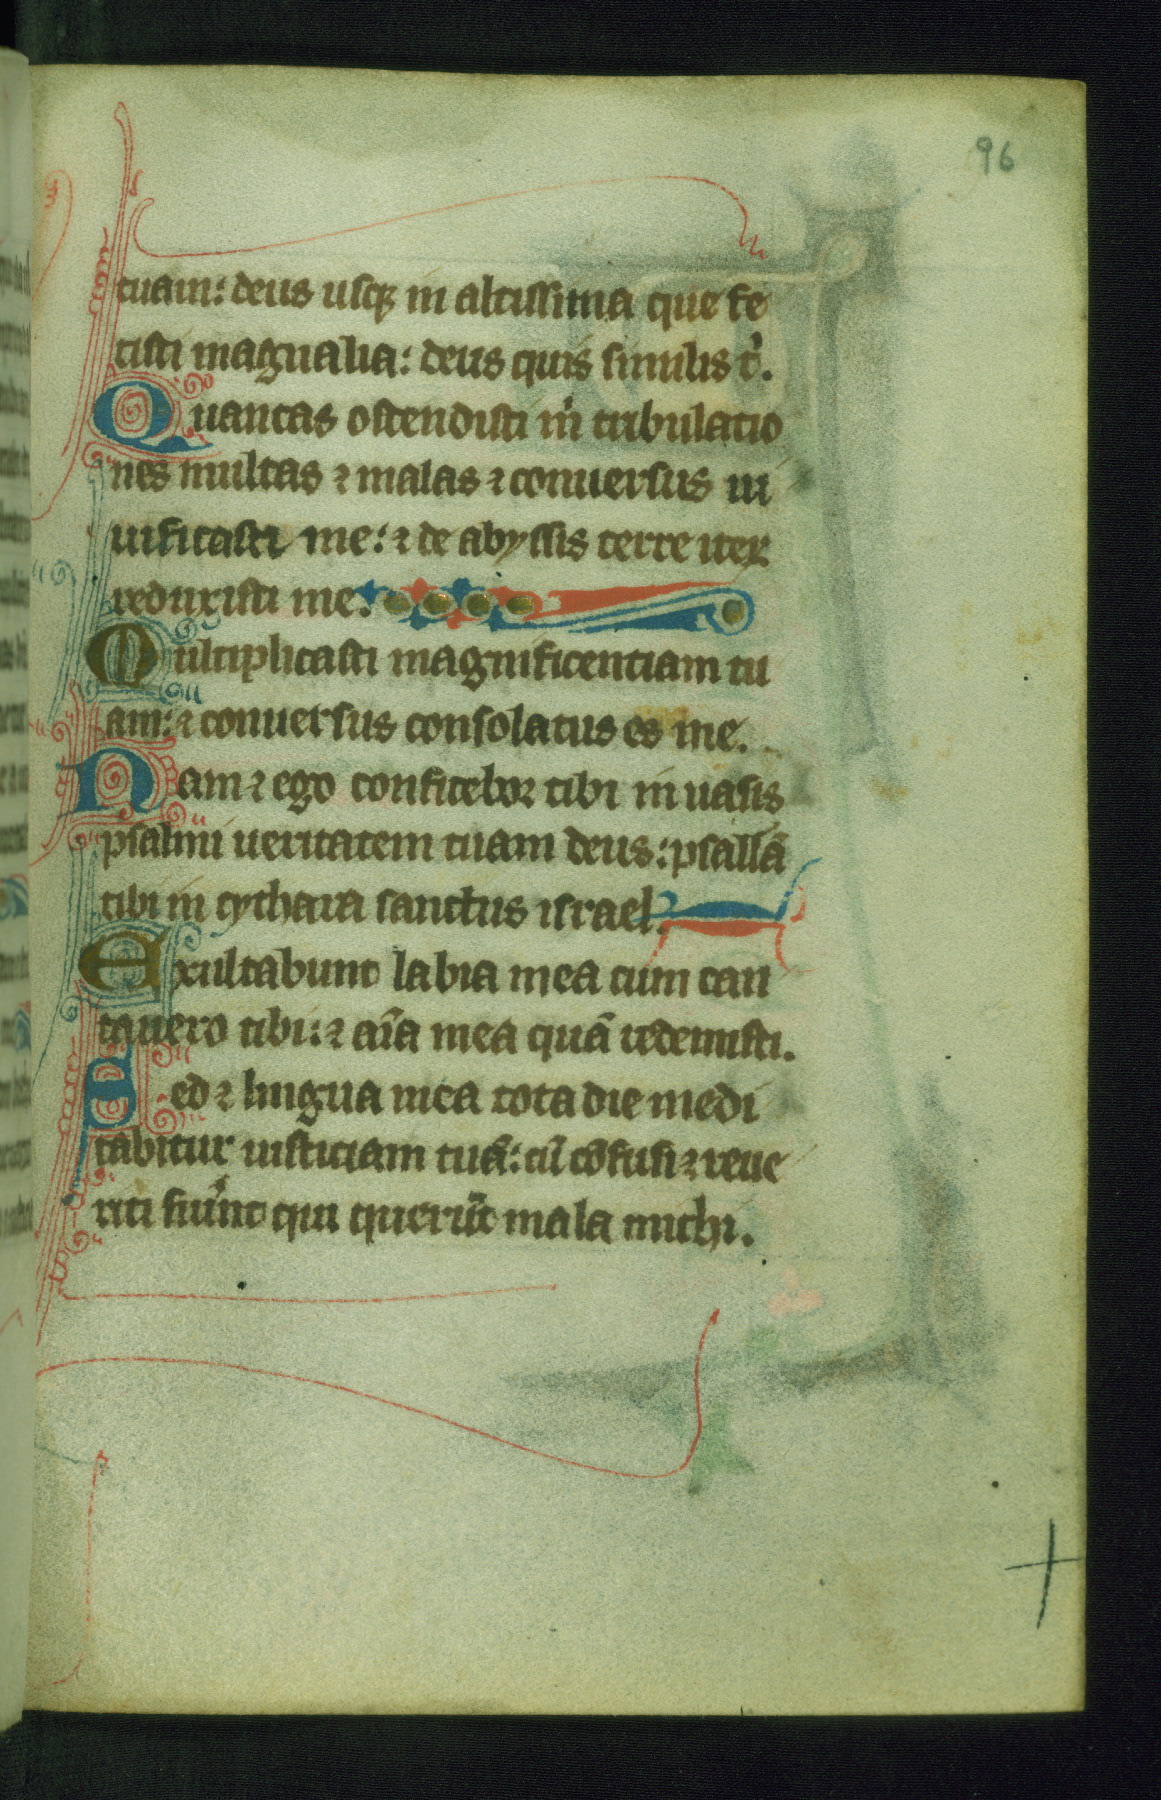 96
tuam: deus usqꝫ in altissima que fe
cisti magnalia: deus quis similis tͥ.
Quantas ostendisti mͥ tribulatio
nes multas ⁊ malas ⁊ conuersus ui
uificasti me: ⁊ de abyssis terre iteꝝ
reduxisti me.
Multiplicasti magnificentiam tu
am: ⁊ conuersus consolatus es me.
Nam ⁊ ego confitebor tibi in uasis
psalmi ueritatem tuam deus: psallā
tibi in cythara sanctus israel.
Exultabunt labia mea cum can
tauero tibi: ⁊ aīa mea quā redemisti.
Sed ⁊ lingua mea tota die medi
tabitur iusticiam tuā: cū cōfusi ⁊ reue
riti fiu͛nt qui querūt mala michi.